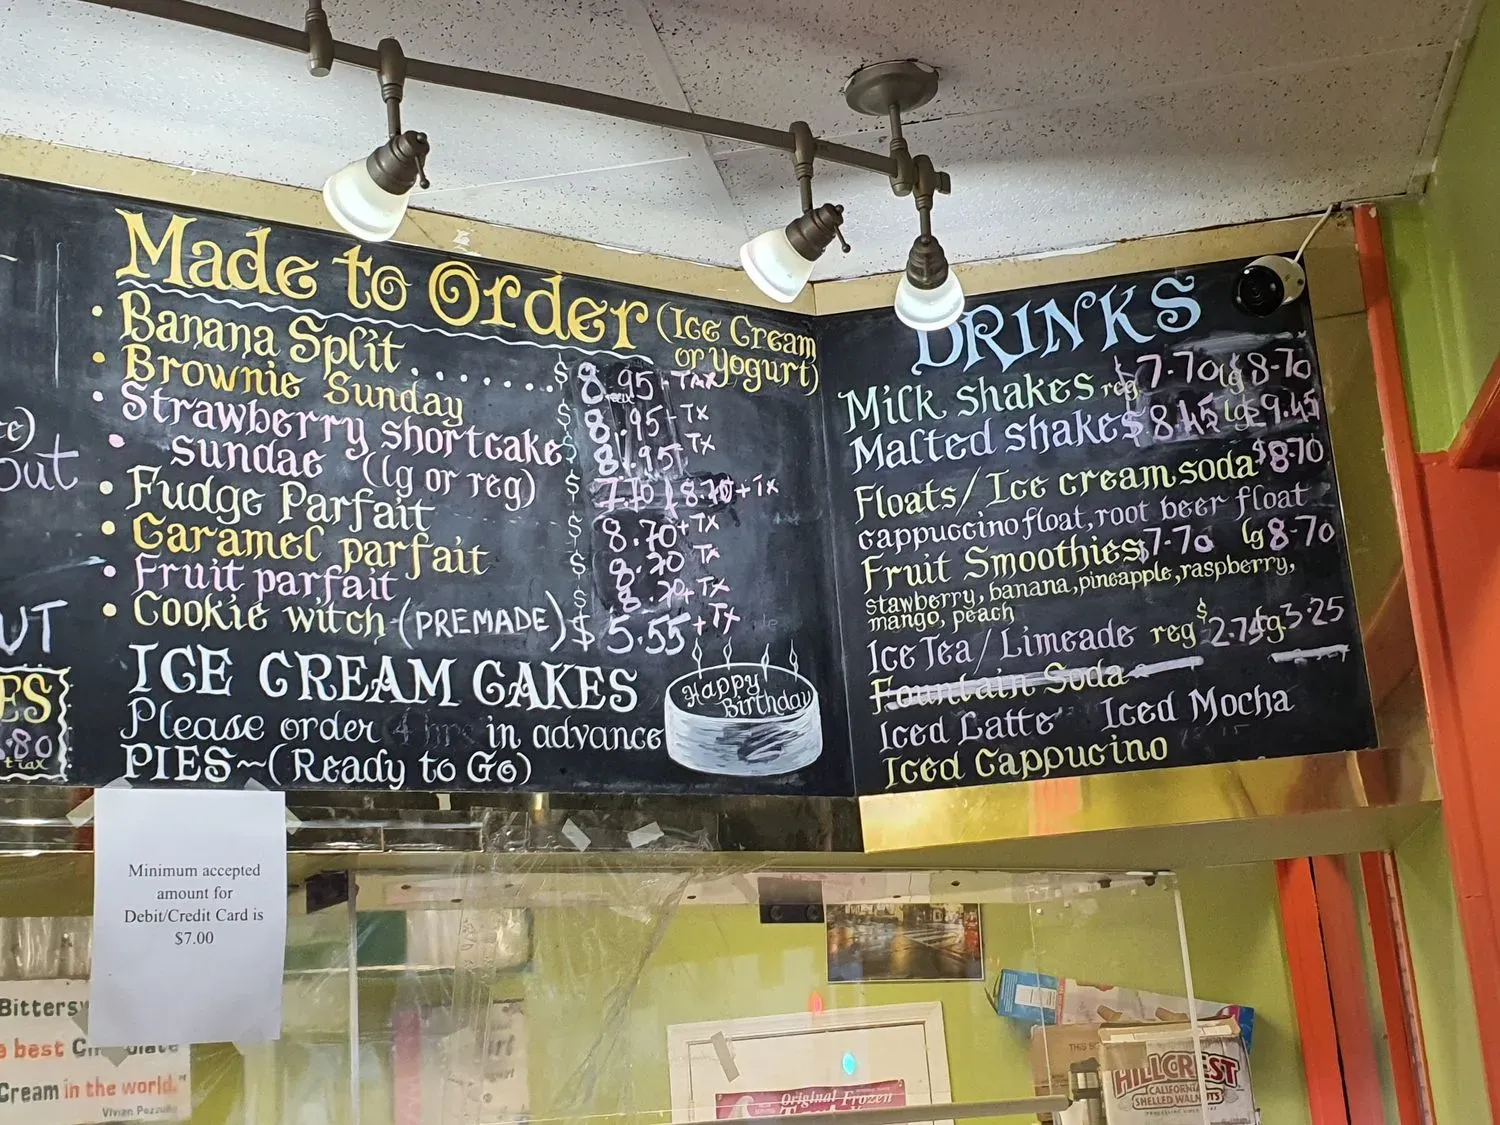 Made to Order (Ice Cream or Yogurt)
• Banana Split . . . . . . . $ 8.95 - TAX
• Brownie Sunday $ 8.95 - TX
• Strawberry shortcake $ 8.95 TX
• sundae (lg or reg) $ 7.70 8.70 + TX
• Fudge Parfait $ 8.70 + TX
• Caramel parfait $ 8.70 TX
• Fruit parfait $ 8.70 + TX
• Cookie witch (PREMADE) $ 5.55 + TX
ICE CREAM CAKES
Please order 4 hrs in advance
PIES~(Ready to Go)
Happy
Birthday
DRINKS
Milk shakes reg $7.70 lg $8.70
Malted shakes $8.45 lg $9.45
Floats/Ice cream soda $8.70
cappuccino float, root beer float
Fruit Smoothies $7.70 lg 8.70
stawberry, banana, pineapple, raspberry,
mango, peach
Ice Tea/Limeade reg $2.75 lg 3.25
Fountain Soda
Iced Latte Iced Mocha
Iced Cappucino
out
UT
ES
.80
+ tax
Minimum accepted
amount for
Debit/Credit Card is
$7.00
best
Cream in the world."
Vivian
Original Frozen
HILLCREST
CALIFORNIA
SHELLED WALNUTS